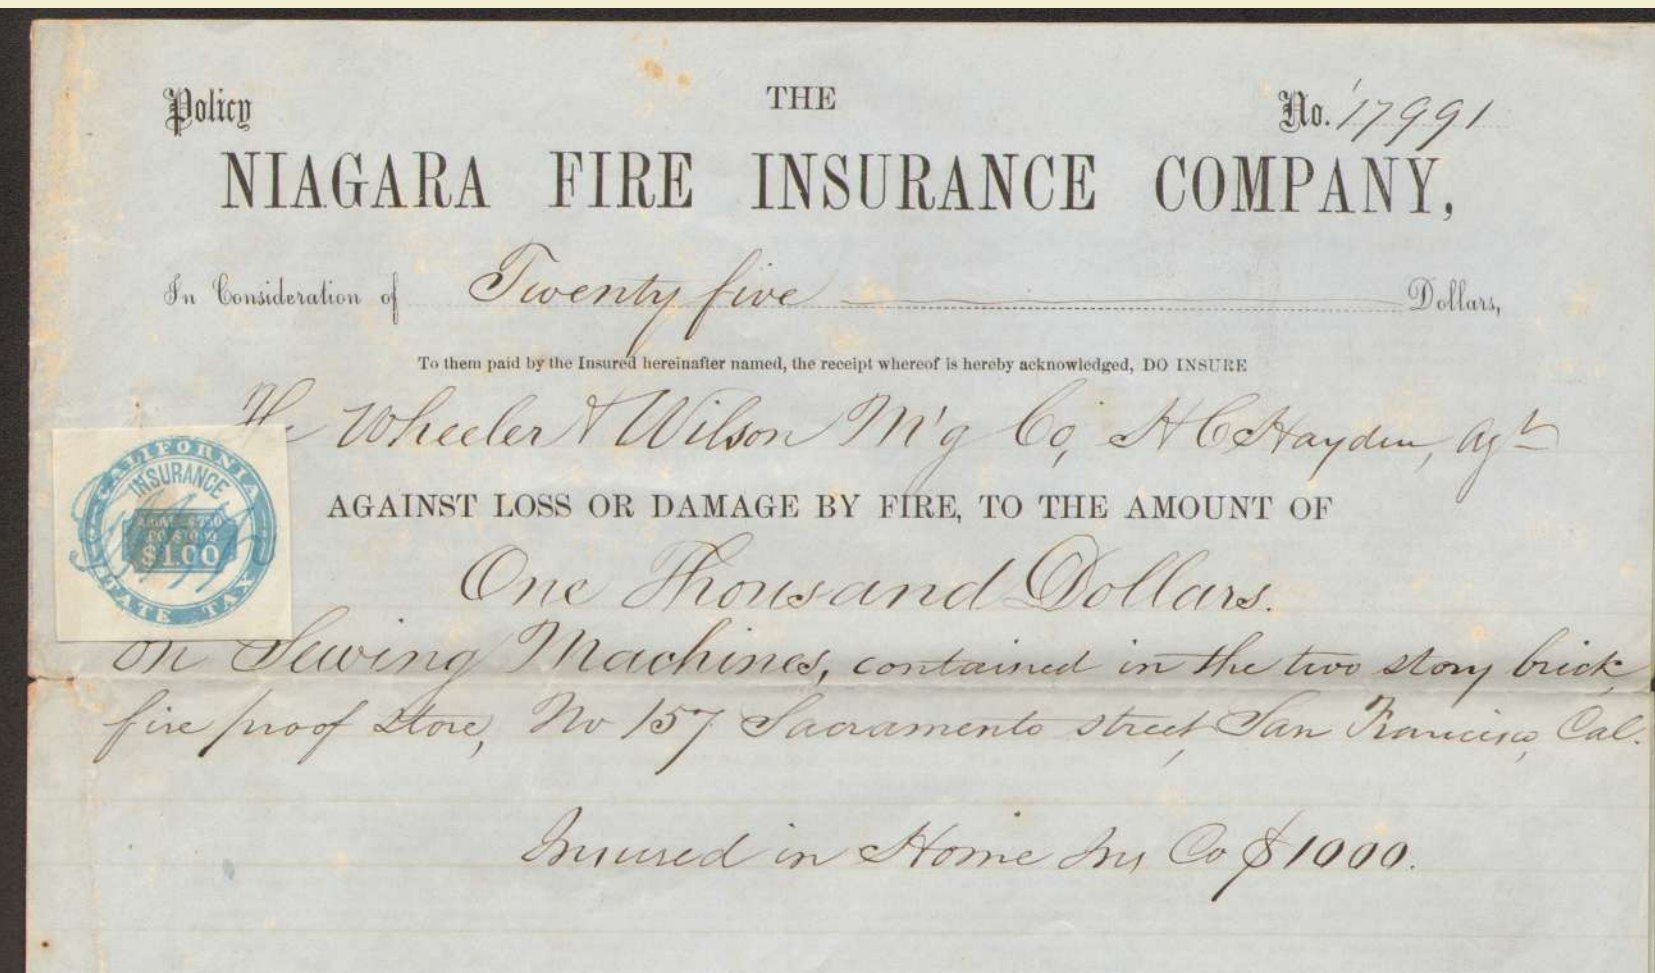 Policy THE No. 17991
NIAGARA FIRE INSURANCE COMPANY,
In Consideration of Twenty five Dollars,
To them paid by the Insured hereinafter named, the receipt whereof is hereby acknowledged, DO INSURE
The Wheeler & Wilson M'g Co, H C Hayden, Agt
CALIFORNIA
INSURANCE
$1.00
STATE TAX
AGAINST LOSS OR DAMAGE BY FIRE, TO THE AMOUNT OF
One Thousand Dollars.
On Sewing Machines, contained in the two story brick
fire proof Store, No 157 Sacramento street, San Francisco, Cal.
Insured in Home Ins Co $1000.